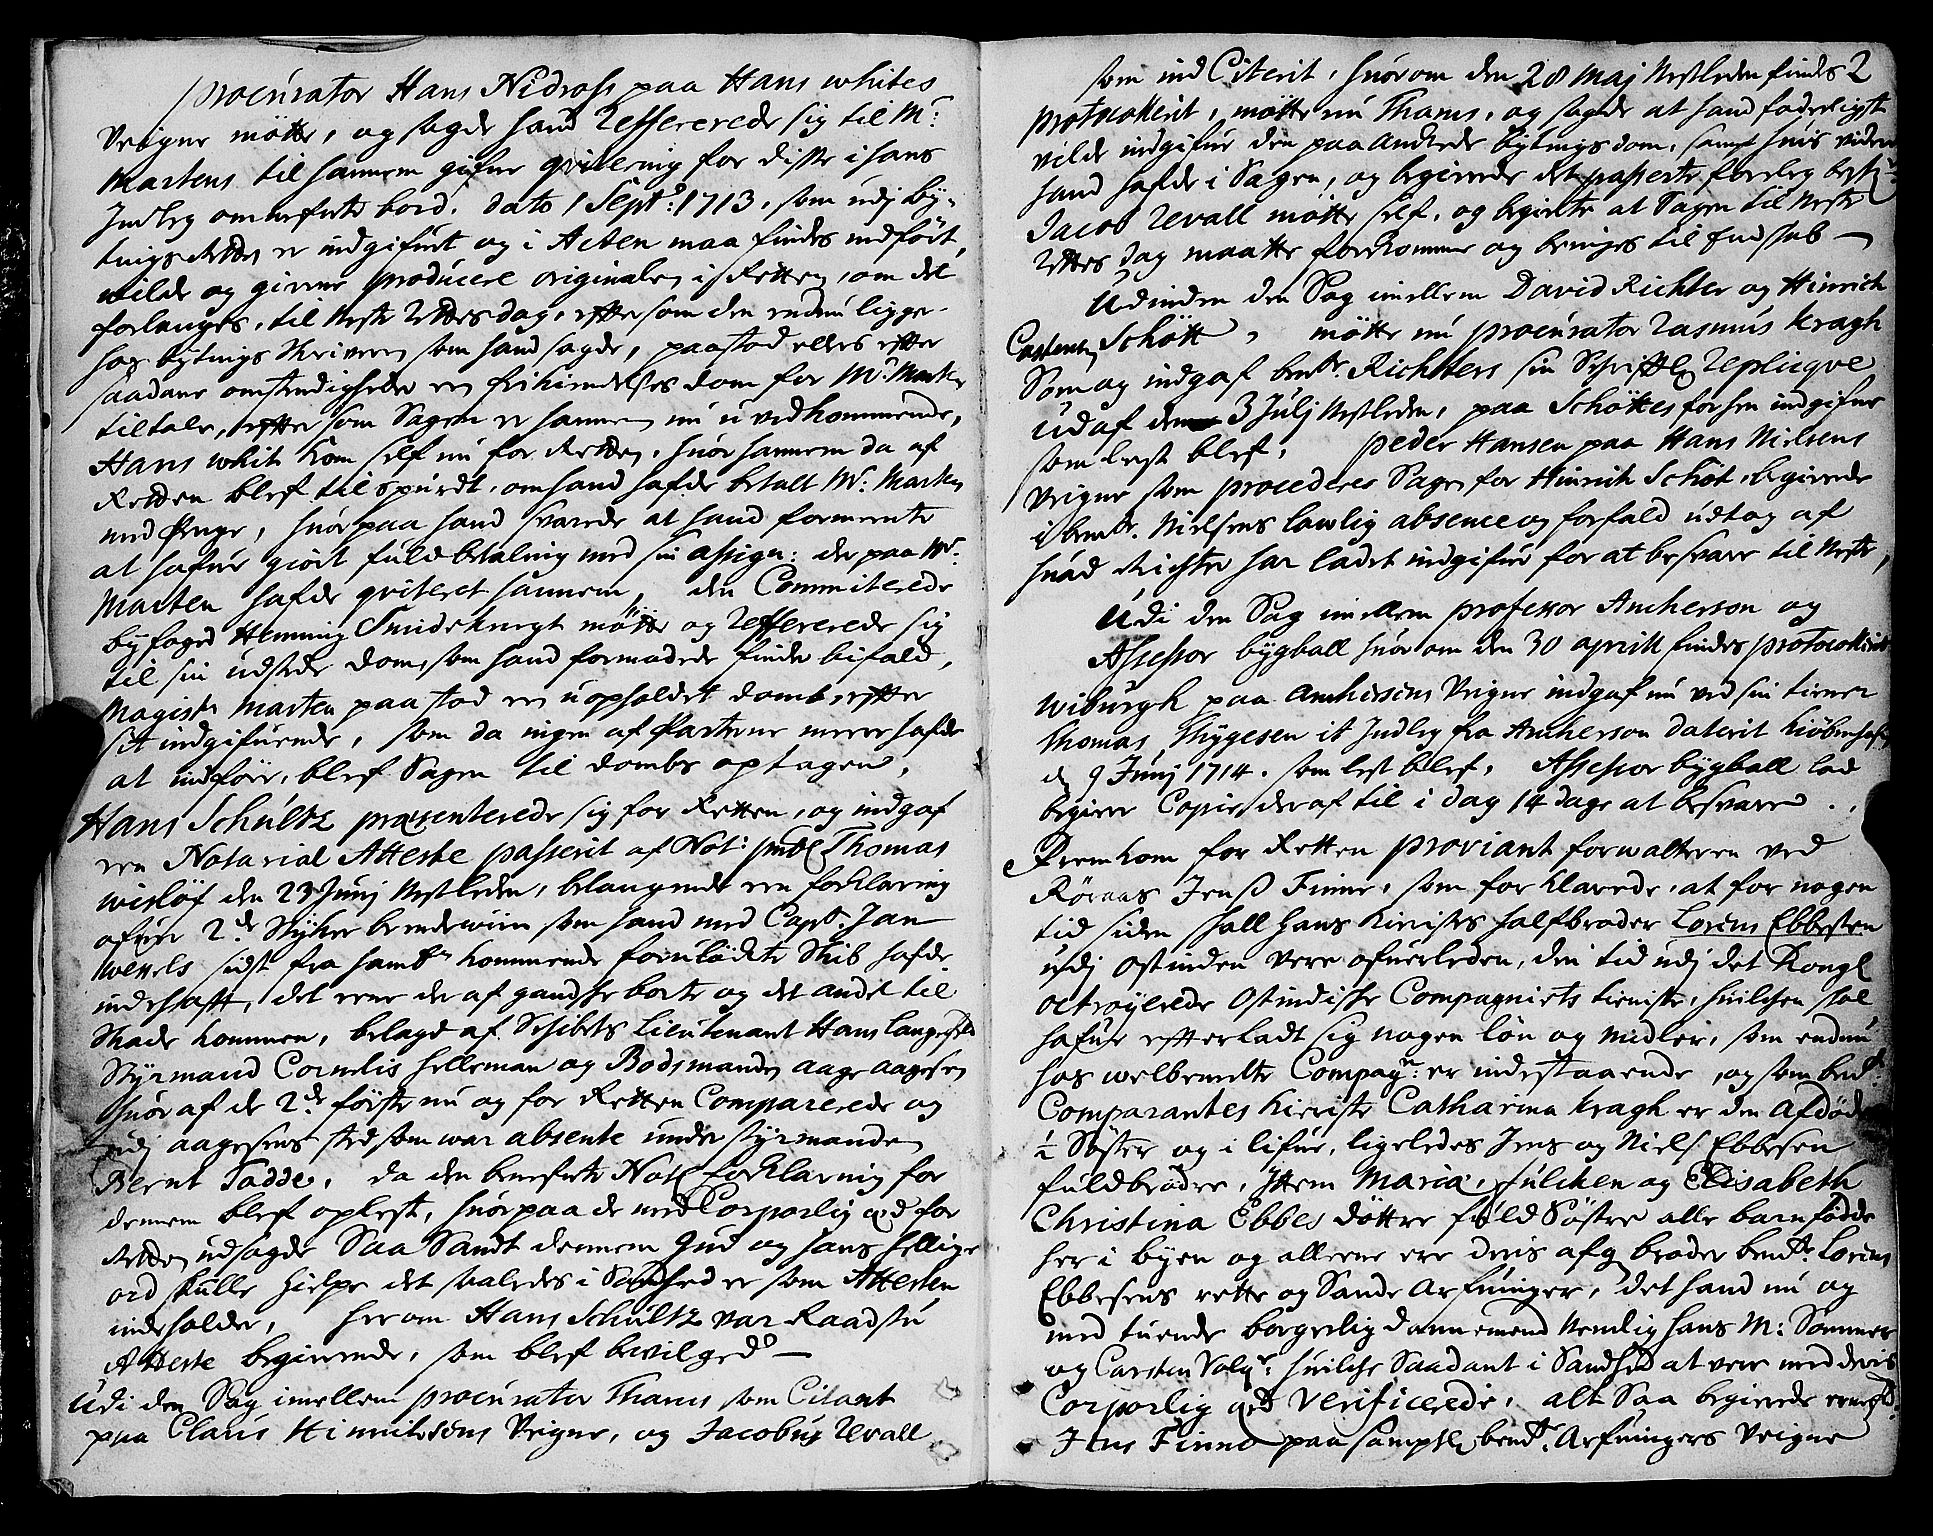 procurator Hans Nidross paa Hans whites
Veigne mötte, og sagde hand Reffererede sig til Mr:
Martens til hannem gifne qvitering for disse i hans
Indleg ommelte bord. dato 1 Septr: 1713. som udj By-
tings Retten er indgifuet og i Acten maa findes indfört,
wilde og gierne producere originalen i Retten, om det
forlanges, til Neste Rettes dag, efftersom den endnu ligger
hos bytings skriveren som hand sagde, paastod ellers efter
saadane omstendigheder en frikiendelses dom for Mr. Marten
tiltale, efftersom Sagen er hannem nu u vedkommende,
Hans whit kom self nu for Retten, huor hannem da af
Retten blef tilspurdt, om hand hafde betalt Mr. Marten
med Penge, huor paa hand svarede at hand formeente
at hafue giort fuld betaling med sin assign: der paa Mr.
Marten hafde qviteret hannem, den Committerede
byfoged Hemming Smidekurgt mötte og Reffererede sig
til sin udstede dom, som hand formodede finder bifald,
Magister Marten paastod en uopholdet domb, effter
sit indgifuende, som da ingen af Parterne meere hafde
at indföre, blef Sagen til dombs optagen.
Hans Schultz præsenterede sig for Retten, og indgaf
een Notarial Atteste passerit af Not: publ Thomas
wislöf den 23 Junij Nestleden, belangende een forklaring
ofuer 2de Styker brendewiin som hand med Capt. Jan
wessels sidst fra hambr kommende forulödte Skib hafde
indehafft, det eene der af gandske borte og det andet til
Skade kommen, belagd af Schibets Lieutenant Hans Langefeld
Styrmand Cornelis Helleman og Bodsmanden aage aagesen
huor af de 2de förste nu og for Retten Comparerede og
udj aagesens sted som war absente under styrmanden
Bernt Tadde, da den benefnte Notl forklaring for
dennem blef oplest, huor paa de med Corporlig æd for
Retten udsagde Saa Sandt dennem Gud og hans hellige
ord skulle hielpe det saaledes i Sandhed er som Attesten
indeholder, herom Hans Schultz var Raadstu
Atteste begierende, som blef bevilged
Udi den Sag imellem procurator Thams som Citant
paa Claus Hinrichsens Veigne, og Jacobus Uvall
som ind Citerit, huorom den 28 Maj Nestleden findes 2
protocollerit, mötte nu Thams, og sagde at hand foderligst
vilde indgifue den paa Andrede bytings dom, samt huis videre
hand hafde i Sagen, og begierede det passerte forleg besk:
Jacob Uvall mötte self, og begierte at Sagen til Neste
Rettes dag maatte forekomme og bringes til Endskab
Udinden den Sag imellem David Richter og Hinrich
Carsten Schött, mötte nu procurator Rasmus Kragh
Som og indgaf bemte. Richters sin Schrifftl Replicqve
udaf den 3 Julj Nestleden, paa Schöttes forhen indgifne
som lest blef, Peder Hansen paa Hans Nielsens
Veigne som procederes Sagen for Hinrich Schöt, begierede
i bemte. Nielsens lawlig absence og forfald udtog af
huad Richter har ladet indgifue for at besvare til Neste,
Udi den Sag imellem professor Ancherson og
Assessor bygball huor om den 30 aprill findes protocollerit
wiburgh paa Anchersens Veigne indgaf nu ved sin tiener
Thomas Thygesen it Indleg fra Ancherson daterit Kiöbenhafn
d 9 Junij 1714. som lest blef, Assessor bygball lod
begiere Copie der af til i dag 14 dage at besvare.
Fremkom for Retten proviant forwalteren ved
Röraas Jens Finne, som forklarede, at for nogen
tid siden skall hans kieristes halfbroder Lorens Ebbesen
udj ostinden vere ofuerleden, den tid udj det Kongl
octroyerede ostindiske Compagniets tieniste, huilchen skal
hafue effterladt sig nogen lön og midler, som endnu
hos welbemelte Compagn: er indestaaende, og som bemte.
Comparantes kieriste Catharina Kragh er den afdödes
1/2 Söster og i lifue, ligeledes Jens og Niels Ebbesen
fuldbrödre, Item Maria, hulchen og Elisabeth
Christina Ebbes döttre fuld Söstre alle barnfödde
her i byen og alleene ere deris afg. broder bemte. Lorens
Ebbesens rette og Sande Arfuinger, det hand nu og
med tuende borgerlig dannemend Nemlig Hans M: Sommer
og Carsten Volqr. huilche Saadant i Sandhed at vere med deris
Corporlig æd verificerede, alt Saa begierede
Jens Finne paa samptl bemte. Arfuingers Veigne